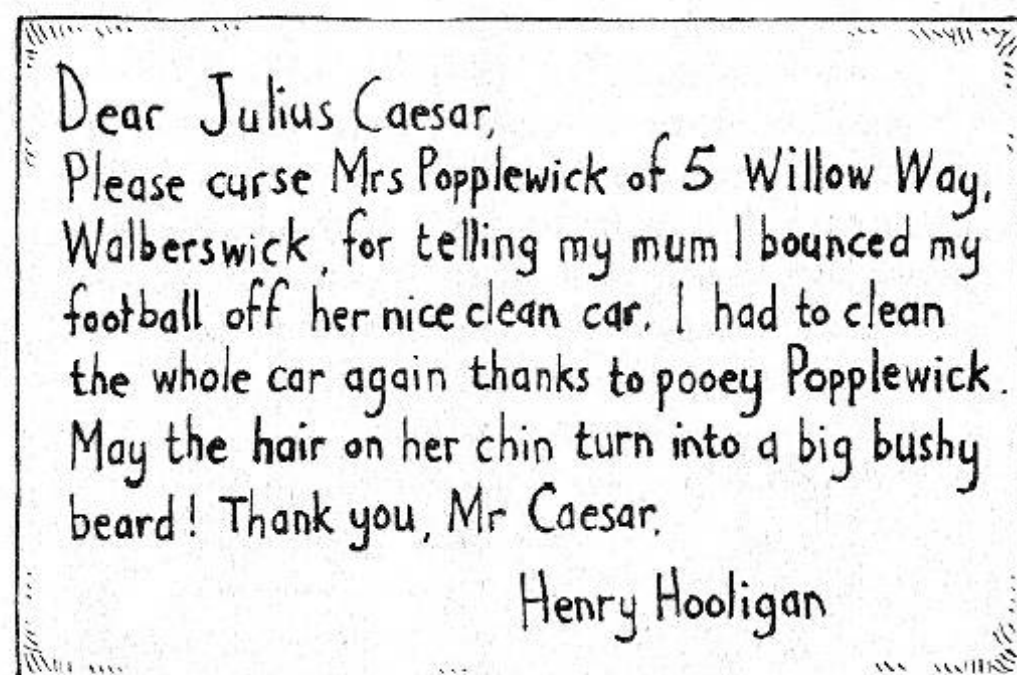 Dear Julius Caesar,
Please curse Mrs Popplewick of 5 Willow Way,
Walberswick, for telling my mum I bounced my
football off her nice clean car. I had to clean
the whole car again thanks to pooey Popplewick.
May the hair on her chin turn into a big bushy
beard! Thank you, Mr Caesar.
Henry Hooligan